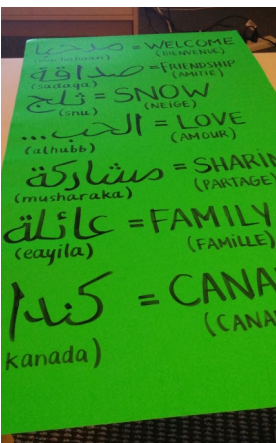 مرحبا = WELCOME
(marhabaan) (BIENVENUE)
صداقة = FRIENDSHIP
(sadaqa) (AMITIÉ)
ثلج = SNOW
(snu) (NEIGE)
...الحب = LOVE
(alhubb) (AMOUR)
مشاركة = SHARIN
(musharaka) (PARTAGE)
عائلة = FAMILY
(eayila) (FAMILLE)
كندا = CANA
kanada) (CANA